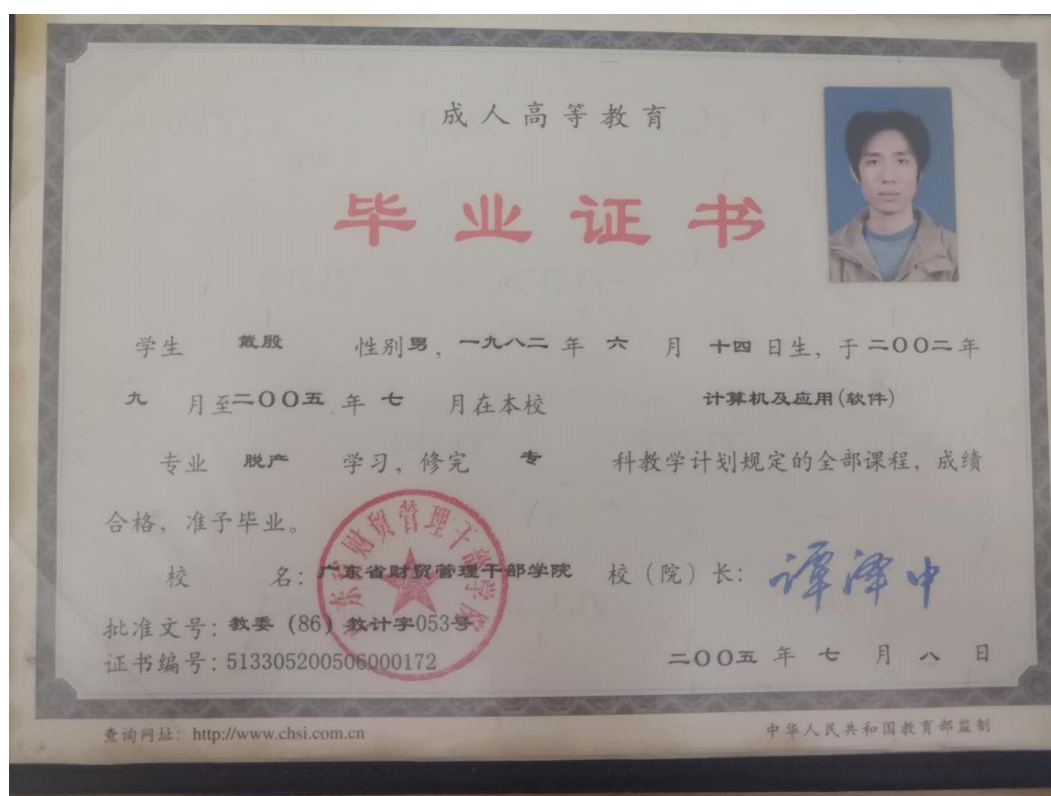 成人高等教育
毕业证书
学生 戴殷 性别男，一九八二年 六 月 十四日生，于二〇〇二年
九 月至二〇〇五年 七 月在本校 计算机及应用(软件)
专业 脱产 学习，修完 专 科教学计划规定的全部课程，成绩
合格，准予毕业。
校 名：广东省财贸管理干部学院 校（院）长：谭泽中
批准文号：教委（86）教计字053号
证书编号：513305200506000172 二〇〇五 年 七 月 八 日
查询网址：http://www.chsi.com.cn 中华人民共和国教育部监制
广东省财贸管理干部学院